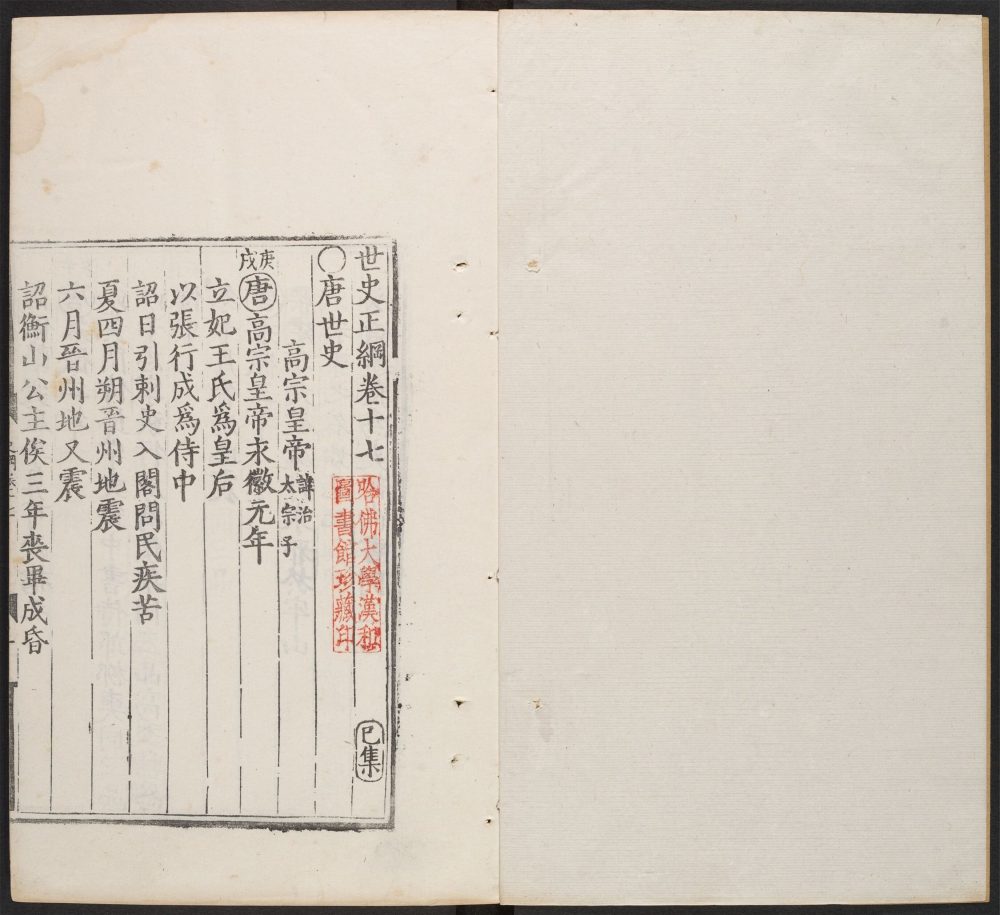 世史正綱卷十七 巳集
○唐世史
高宗皇帝 諱治 太宗子
庚戌 唐高宗皇帝永徽元年
立妃王氏爲皇后
以張行成爲侍中
詔日引刺史入閣問民疾苦
夏四月朔晉州地震
六月晉州地又震
詔衡山公主俟三年喪畢成昏
哈佛大學漢和
圖書館珍藏印